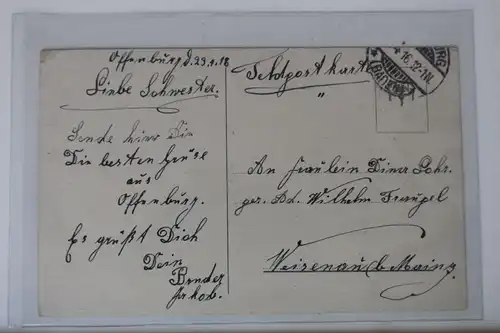 Offenburg d. 23.1.16
Liebe Schwester.
Sende hier Die
Die besten Grüse
aus
Offenburg.
Es grüßt Dich
Dein
Bruder
Jakob.
Feldpostkarte
"
An Fräulein Dina
per. Ad. Wilhelm
Weisenau b. Mainz